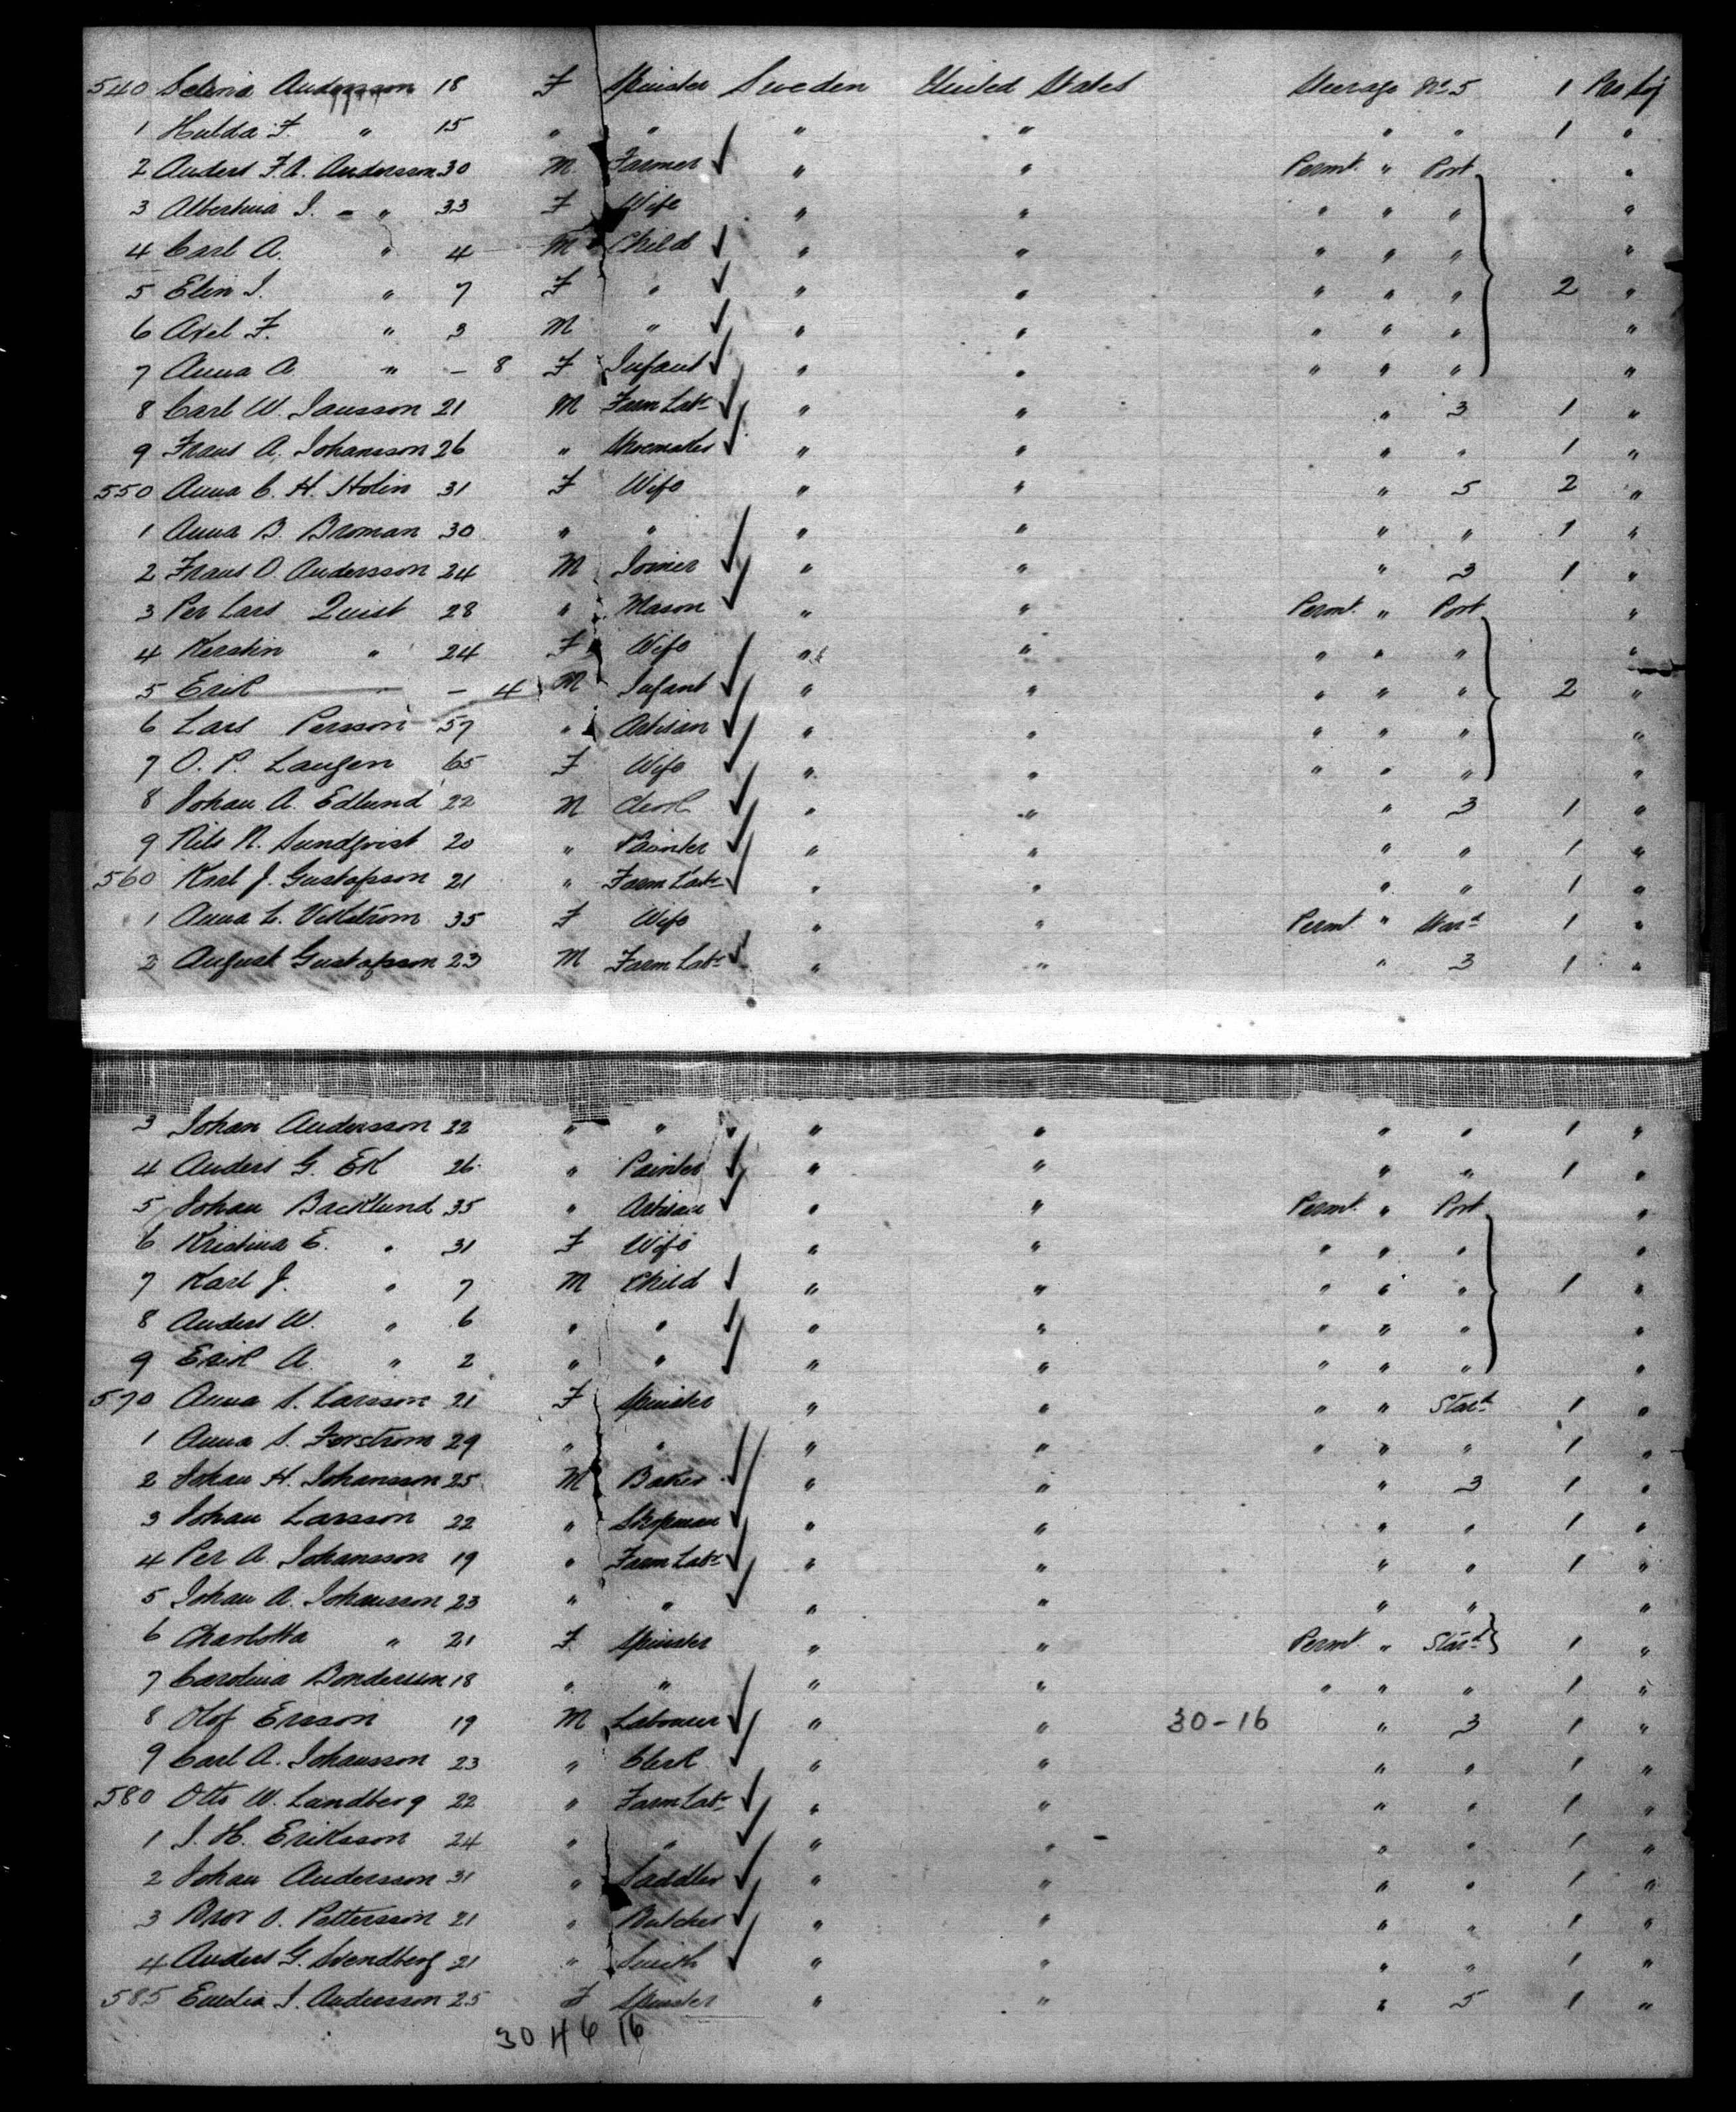 540 Selina Andersson 18 F Spinster Sweden United States Steerage No 5 1 Pro Soj
1 Hulda F. " 15 " " " " " " 1 "
2 Anders F. A. Andersson 30 M Farmer " " Permt. " Port "
3 Albertina I. " 33 F Wife " " " " " "
4 Carl A. " 4 M Child " " " " " "
5 Elin I. " 7 F " " " " " " 2 "
6 Axel F. " 3 M " " " " " " "
7 Anna A " - 8 F Infant " " " " " "
8 Carl W. Jansson 21 M Farm Labr " " " 3 1 "
9 Frans A. Johansson 26 " Shoemaker " " " " 1 "
550 Anna C. H. Holin 31 F Wife " " " 5 2 "
1 Anna B. Broman 30 " " " " " " 1 "
2 Frans O. Andersson 24 M Joiner " " " 3 1 "
3 Per Lars Quist 28 " Mason " " Permt. " Port "
4 Kerstin " 24 F Wife " " " " " "
5 Erik - 4 M Infant " " " " " 2 "
6 Lars Persson 57 " Artisan " " " " " "
7 O. P. Laugen 65 F Wife " " " " " "
8 Johan A. Edlund 22 M Clerk " " " 3 1 "
9 Nils N. Sundqvist 20 " Painter " " " " 1 "
560 Karl J. Gustafsson 21 " Farm Labr " " " " 1 "
1 Anna L. Vikström 35 F Wife " " Permt " Starbd 1 "
2 August Gustafsson 23 M Farm Labr " " " 3 1 "
3 Johan Andersson 22 " " " " " " 1 "
4 Anders G. Ek 26 " Painter " " " " 1 "
5 Johan Backlund 35 " Artisan " " Permt. " Port "
6 Kristina E. " 31 F Wife " " " " " "
7 Karl J. " 7 M Child " " " " " 1 "
8 Anders W. " 6 " " " " " " " "
9 Erik A. " 2 " " " " " " " "
570 Anna S. Larsson 21 F Spinster " " " " Starbd 1 "
1 Anna S. Forstrom 29 " " " " " " " 1 "
2 Johan H. Johansson 25 M Baker " " " 3 1 "
3 Johan Larsson 22 " Shopman " " " " 1 "
4 Per A. Johansson 19 " Farm Labr " " " " 1 "
5 Johan A. Johansson 23 " " " " " " "
6 Charlotta " 21 F Spinster " " Permt. " Starbd 1 "
7 Carolina Bondersson 18 " " " " " " " 1 "
8 Olof Ersson 19 M Labourer " " 30-16 " 3 1 "
9 Carl A. Johansson 23 " Clerk " " " " 1 "
580 Otto W. Lundberg 22 " Farm Labr " " " " 1 "
1 J. H. Eriksson 24 " " " " " " 1 "
2 Johan Andersson 31 " Saddler " " " " 1 "
3 Bror O. Pettersson 21 " Butcher " " " " 1 "
4 Anders G. Svendberg 21 " Smith " " " " 1 "
585 Emelia I. Andersson 25 F Spinster " " " 5 1 "
30 4 6 16